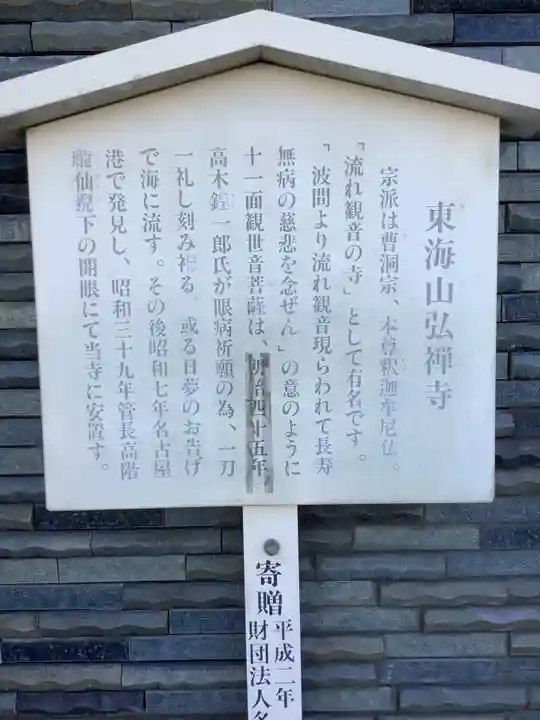 東海山弘禅寺
宗派は曹洞宗、本尊釈迦牟尼仏。
「流れ観音の寺」として有名です。
「波間より流れ観音現らわれて長寿
無病の慈悲を念ぜん」の意のように
十一面観世音菩薩は、明治四十五年
高木鐘一郎氏が眼病祈願の為、一刀
一礼し刻み祀る。或る日夢のお告げ
で海に流す。その後昭和七年名古屋
港で発見し、昭和三十九年管長高階
瓏仙猊下の開眼にて当寺に安置す。
寄贈
平成二年
財団法人名